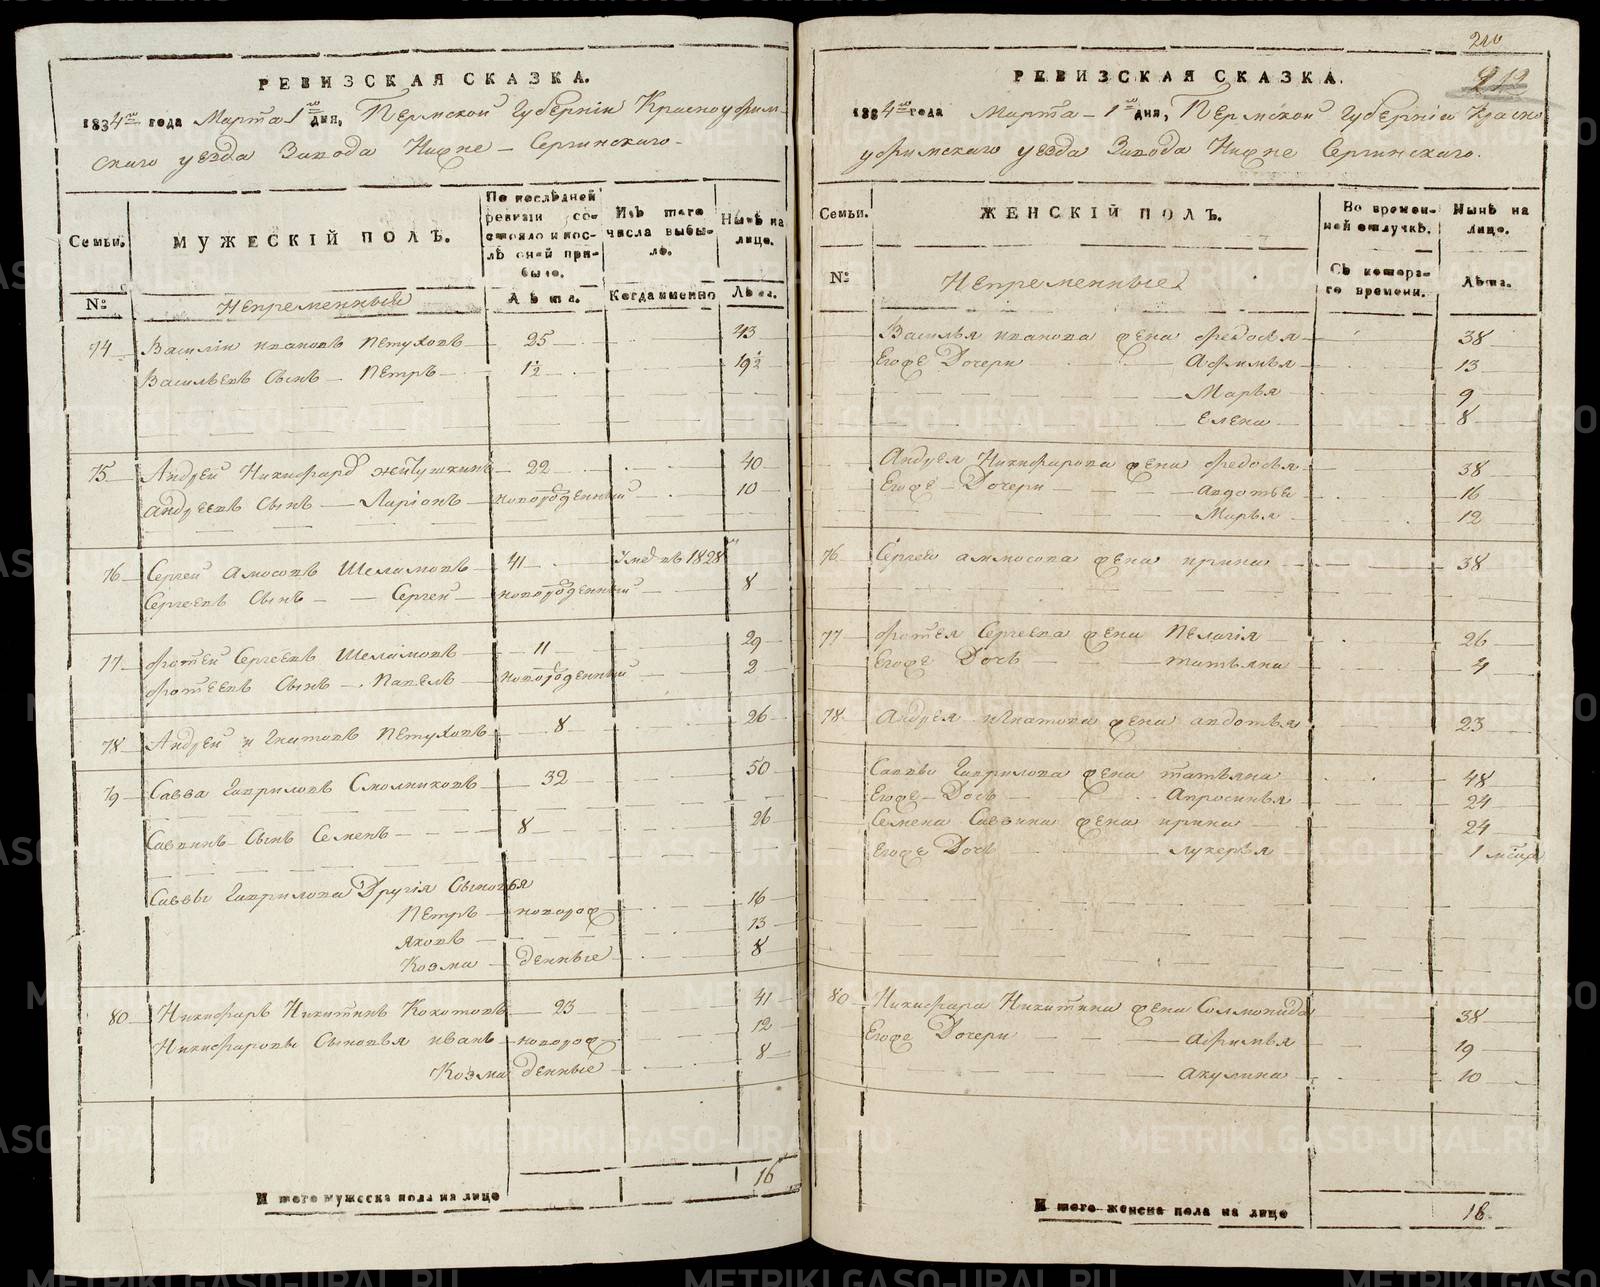 РЕВИЗСКАЯ СКАЗКА.
1834го года Марта 1го дня, Пермской Губернiи Красноуфим-
скаго уезда Завода Нижне-Сергинскаго.
Семьи. МУЖЕСКIЙ ПОЛЪ. По послѣдней ревизiи состояло и послѣ оной прибыло. Изъ того числа выбыло. Нынѣ на лице.
№ Непременный Лѣта. Когда именно Лѣта.
74 Василiи Ивановъ Петуховъ 25 43
Васильевъ Сынъ Петръ 1½ 19½
75 Андрей Никифоров 22 40
Андреевъ Сынъ Ларiонъ новорожденный 10
76 Сергей Амосовъ Шеламовъ 41 Умер въ 1828
Сергеевъ Сынъ Сергей новорожденный 8
77 Фотей Сергеевъ Шеламовъ 11 29
Фотеевъ Сынъ Павелъ новорожденный 2
78 Андрей Игнатовъ Петуховъ 8 26
79 Савва Гавриловъ Смолниковъ 32 50
Саввинъ Сынъ Семенъ 8 26
Саввы Гаврилова Другiя Сыновья
Петръ новорож 16
Яковъ 13
Козма денные 8
80 Никифаръ Никитинъ Кокотовъ 23 41
Никифаровы Сыновья Иванъ новорож 12
Козма денные 8
И того мужеска пола на лице 16
210
212
РЕВИЗСКАЯ СКАЗКА.
1834го года Марта 1го дня, Пермской Губернiи Красно
уфимскаго уезда Завода Нижне Сергинскаго.
Семьи. ЖЕНСКIЙ ПОЛЪ. Во временной отлучкѣ. Нынѣ на лице.
№ Непременные Съ котораго времени. Лѣта.
Василья Иванова жена Федосья 38
Егоже Дочери Афимья 13
Марья 9
Елена 8
Андрея Никифарова жена Федосья 38
Егоже Дочери Авдотья 16
Марья 12
76 Сергея Аммосова жена Ирина 38
77 Фотея Сергеева жена Пелагiя 26
Егоже Дочь Татьяна 4
78 Андрея Игнатова жена Авдотья 23
Саввы Гаврилова жена Татьяна 48
Егоже Дочь Апросинья 24
Семена Саввина жена Ирина 24
Егоже Дочь Лукерья 1 месяца
80 Никифара Никитина жена Соломонида 38
Егоже Дочери Афимья 19
Акулина 10
И того женска пола на лице 18.
METRIKI.GASO-URAL.RU